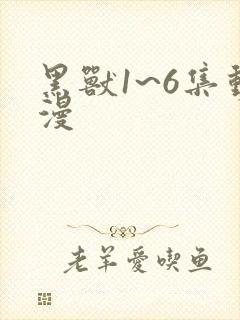 黑獸1~6集動
漫
老羊愛喫魚